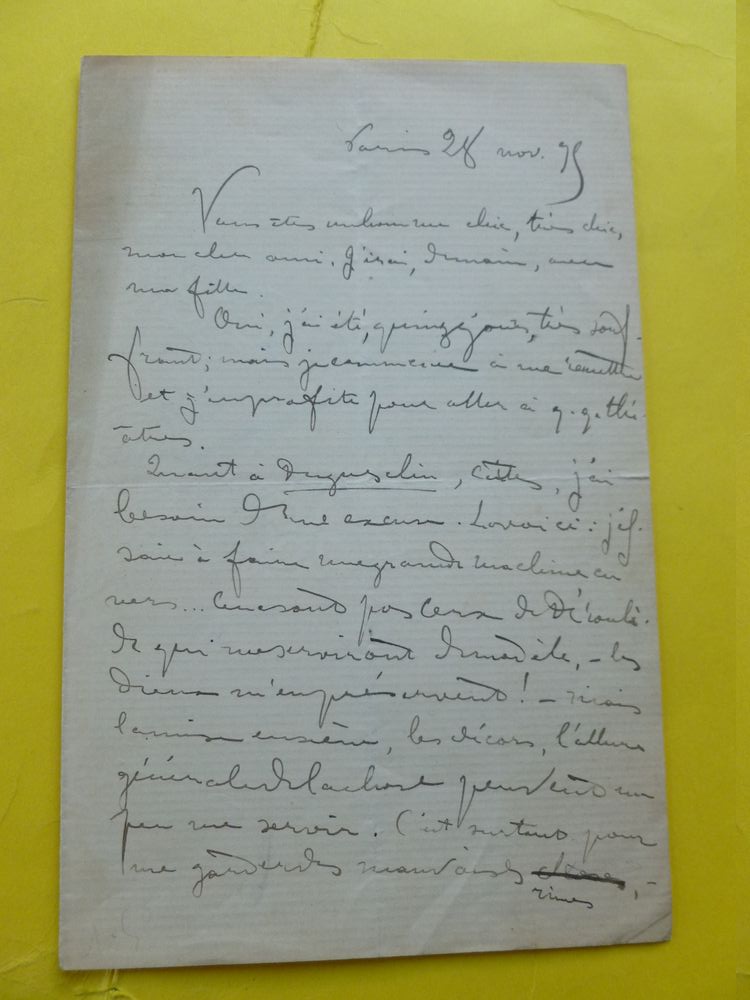 Paris 28 nov. 95
Vous êtes un homme chic, très chic,
mon cher ami. J'irai, demain, avec
ma fille.
Oui, j'ai été, quinze jours, très souf-
frant ; mais je commence à me remettre
et j'en profite pour aller à q.q. thé-
âtres.
Quant à Duguesclin, certes, j'ai
besoin d'une excuse. La voici : j'es-
saie à faire une grande machine en
vers... Ce ne sont pas ceux de Déroulè-
de qui me serviront de modèle, – les
dieux m'en préservent ! – mais
la mise en scène, les décors, l'allure
générale de la chose peuvent un
peu me servir. C'est surtout pour
me garder des mauvaises choses, –
rimes